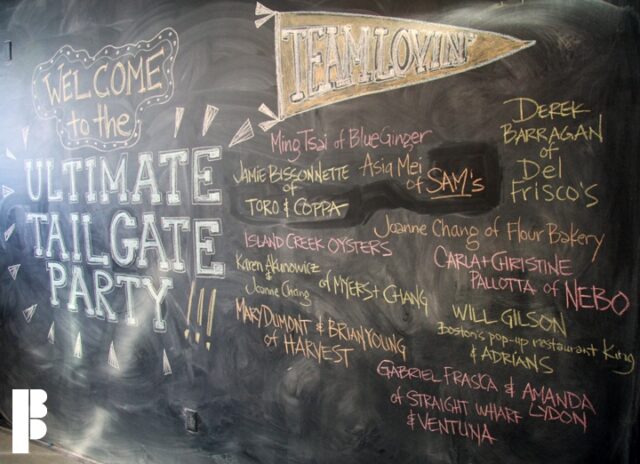 WELCOME
to the
ULTIMATE
TAILGATE
PARTY!!!
TEAM LOVIN'
MING TSAI of BLUE GINGER
JAMIE BISSONNETTE
of
TORO & COPPA
ASIA MEI
of SAM'S
DEREK
BARRAGAN
of
DEL
FRISCO'S
JOANNE CHANG of FLOUR BAKERY
ISLAND CREEK OYSTERS
KAREN AKUNOWICZ
&
JOANNE CHANG
of MYERS + CHANG
CARLA + CHRISTINE
PALLOTTA of NEBO
MARY DUMONT & BRIAN YOUNG
of HARVEST
WILL GILSON
Boston's pop-up restaurant King
& ADRIANS
GABRIEL FRASCA & AMANDA
LYDON
of STRAIGHT WHARF
& VENTUNA
B